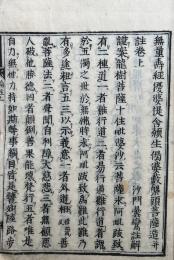 無量壽經優婆提舍願生偈婆藪槃頭菩薩造并
註卷上 沙門曇鸞註解
謹案龍樹菩薩十住毗婆沙云菩薩求阿毗跋致
有二種道一者難行道二者易行道難行道者謂
於五濁之世於無佛時求阿毗跋致為難此難乃
有多途粗言五三以示義意一者外道相善
亂菩薩法二者聲聞自利障大慈悲三者無顧惡
人破他勝德四者顛倒善果能壞梵行五者唯是
自力無他力持如斯等事觸目皆是譬如陸路步